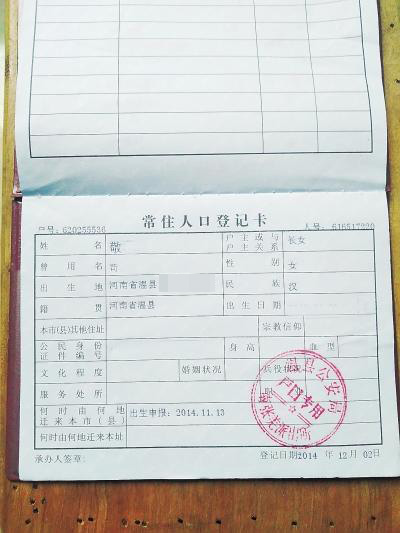 常住人口登记卡
户号: 620255536 人号: 616517220
姓名 敬 户主或与户主关系 长女
曾用名 苟 性别 女
出生地 河南省温县 民族 汉
籍贯 河南省温县 出生日期
本市(县)其他住址 宗教信仰
公民身份证件编号 身高 血型
文化程度 婚姻状况 兵役状况
服务处所
何时由何地迁来本市(县) 出生申报: 2014.11.13
何时由何地迁来本址
温县公安局
户口专用
承办人签章: 登记日期2014 年 12 月 02日